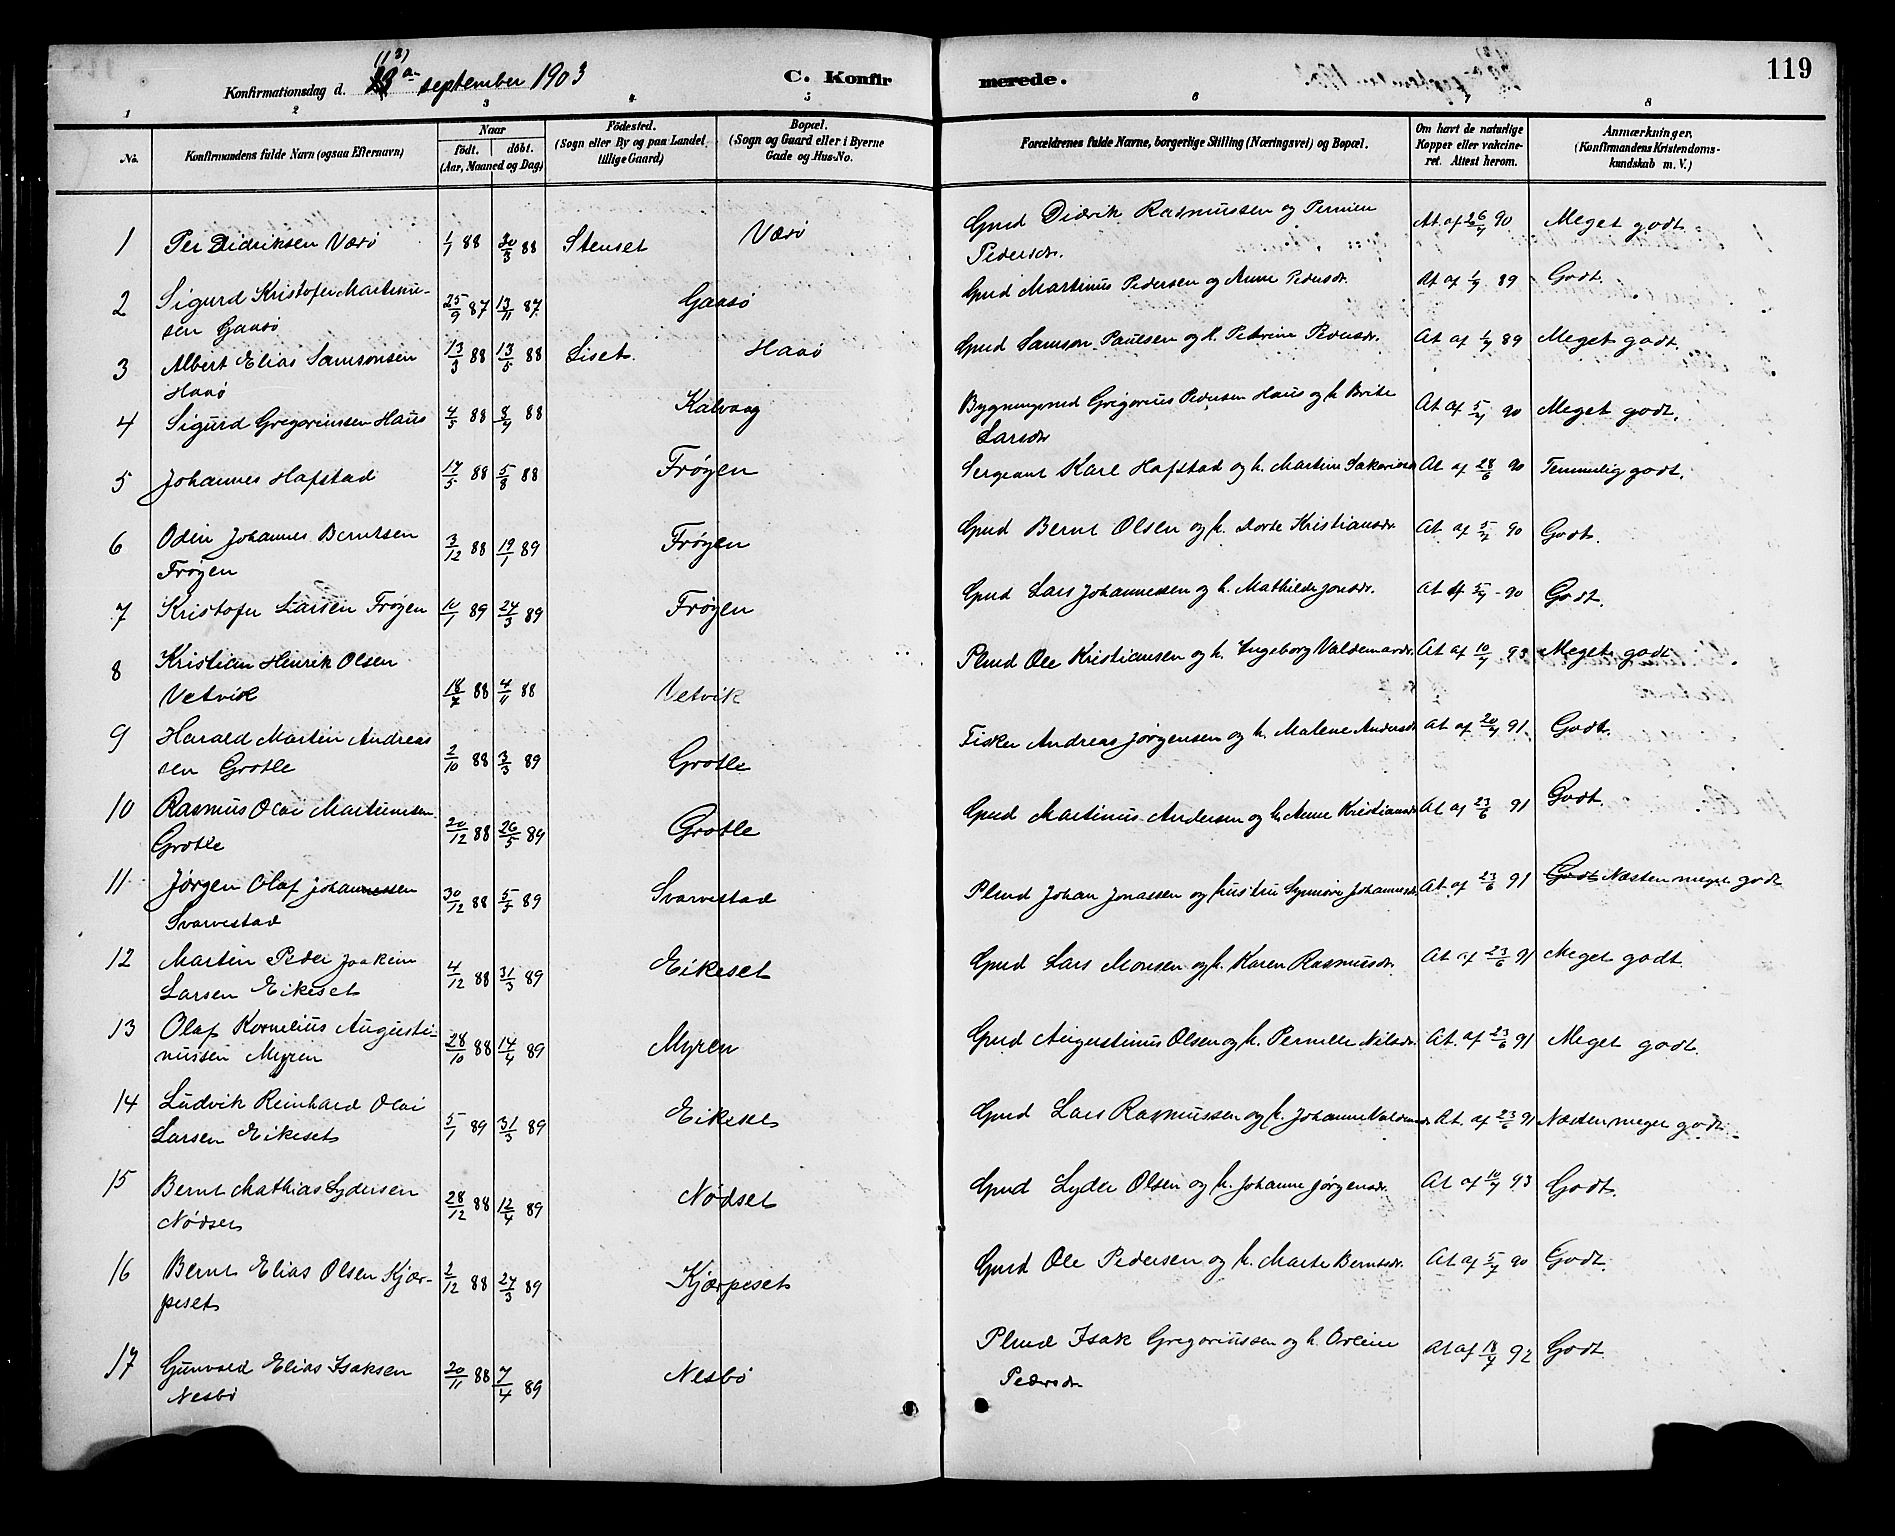 119
Konfirmationsdag d. september 1903 C. Konfirmerede.
1 2 3 4 5 6 7 8
No. Konfirmandens fulde Navn (ogsaa Efternavn) Naar födt. döbt. (Aar, Maaned og Dag) Födested. (Sogn eller By og paa Landet tillige Gaard) Bopæl. (Sogn og Gaard eller i Byerne Gade og Hus-No. Forældrenes fulde Navne, borgerlige Stilling (Næringsvei) og Bopæl. Om havt de naturlige Kopper eller vakcineret. Attest herom. Anmærkninger. (Konfirmandens Kristendomskundskab m. V.)
1 Per Didriksen Værö 1/1 88 30/3 88 Stenset Værö Gmd Didrik Rasmussen og
Pedersdr. At af 26/7 90 Meget godt.
2 Sigurd Kristofer Martinu-
sen Gaasö 25/9 87 13/11 87 Gaasö Gmd Martinus Pedersen og Anne Pedersdr. At af 1/7 89 Godt.
3 Albert Elias Samsonsen
Haaö 13/3 88 13/5 88 Liset. Haaö Gmd Samson Paulsen og h. Petrine At af 1/7 89 Meget godt.
4 Sigurd Gregoriussen Haus 4/3 88 8/4 88 Kalvaag Bygningsmd Grigorius Pedersen Haus og h Brite
Larsdr At af 5/7 90 Meget godt.
5 Johannes Hafstad 17/5 88 5/8 88 Frøyen Sergeant Karl Hafstad og h. Martine At af 28/6 90 Temmelig godt.
6 Odin Johannes Berntsen
Frøyen 3/12 88 19/1 89 Frøyen Gmd Bernt Olsen og h. Dorte Kristiansdr. At af 5/7 90 Godt.
7 Kristofer Larsen Frøyen 10/1 89 24/3 89 Frøyen Gmd Lars Johannessen og h. Mathilde Jonsdr. At af 5/7 - 90 Godt.
8 Kristian Henrik Olsen
Vetvik 18/7 88 4/11 88 Vetvik Plmd Ole Kristiansen og h. Ingeborg Valdemarsdr. At af 10/7 93 Meget godt
9 Harald Martin Andreas
sen Grotle 2/10 88 3/3 89 Grotle Fisker Andreas Jørgensen og h. Malene Andersdr At af 20/7 91 Godt.
10 Rasmus Olai Martinusen
Grotle 20/12 88 26/5 89 Grotle Gmd Martinus Andersen og h. Anne Kristiansdr At af 23/6 91 Godt.
11 Jørgen Olaf Johannessen
Svarvestad 30/12 88 5/5 89 Svarvestad Plmd Johan Jonassen og hustru Synnöve Johannesdr At af 23/6 91 Godt Næsten meget godt
12 Martin Peder Joakim
Larsen Eikeset 4/12 88 31/3 89 Eikeset Gmd Lars Monsen og h. Karen Rasmusdr. At af 23/6 91 Meget godt.
13 Olaf Kornelius Augusti-
nussen Myren 28/10 88 14/4 89 Myren Gmd Augustinus Olsen og h. Pernille Nilsdr. At. af 23/6 91 Meget godt.
14 Ludvik Reinhard Olai
Larsen Eikeset 5/1 89 31/3 89 Eikeset Gmd Lars Rasmussen og h. Johanne At. af 23/6 91 Næsten meget godt.
15 Bernt Mathias Lydersen
Nödset 28/12 88 12/4 89 Nödset Gmd Lyder Olsen og h. Johanne Jørgensdr. At af 10/7 93 Godt.
16 Bernt Elias Olsen Kjær-
peset 2/12 88 24/3 89 Kjærpeset Gmd Ole Pedersen og h. Marte Berntsdr. At af 5/7 90 Godt.
17 Gunvald Elias Isaksen
Nesbö 20/11 88 7/4 89 Nesbö Plmd Isak Gregoriussen og h.
Pedersdr At af 18/7 92 Godt